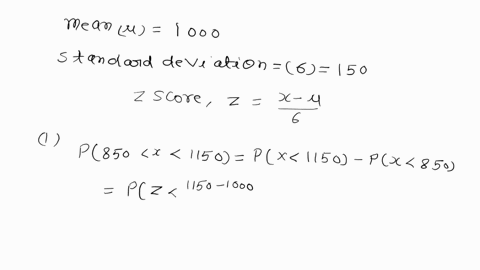 mean(μ) = 1000
standard deviation = (6) = 150
Z score, Z = x-μ/6
(1) P(850 < x < 1150) = P(x < 1150) - P(x < 850)
= P(Z < 1150-1000